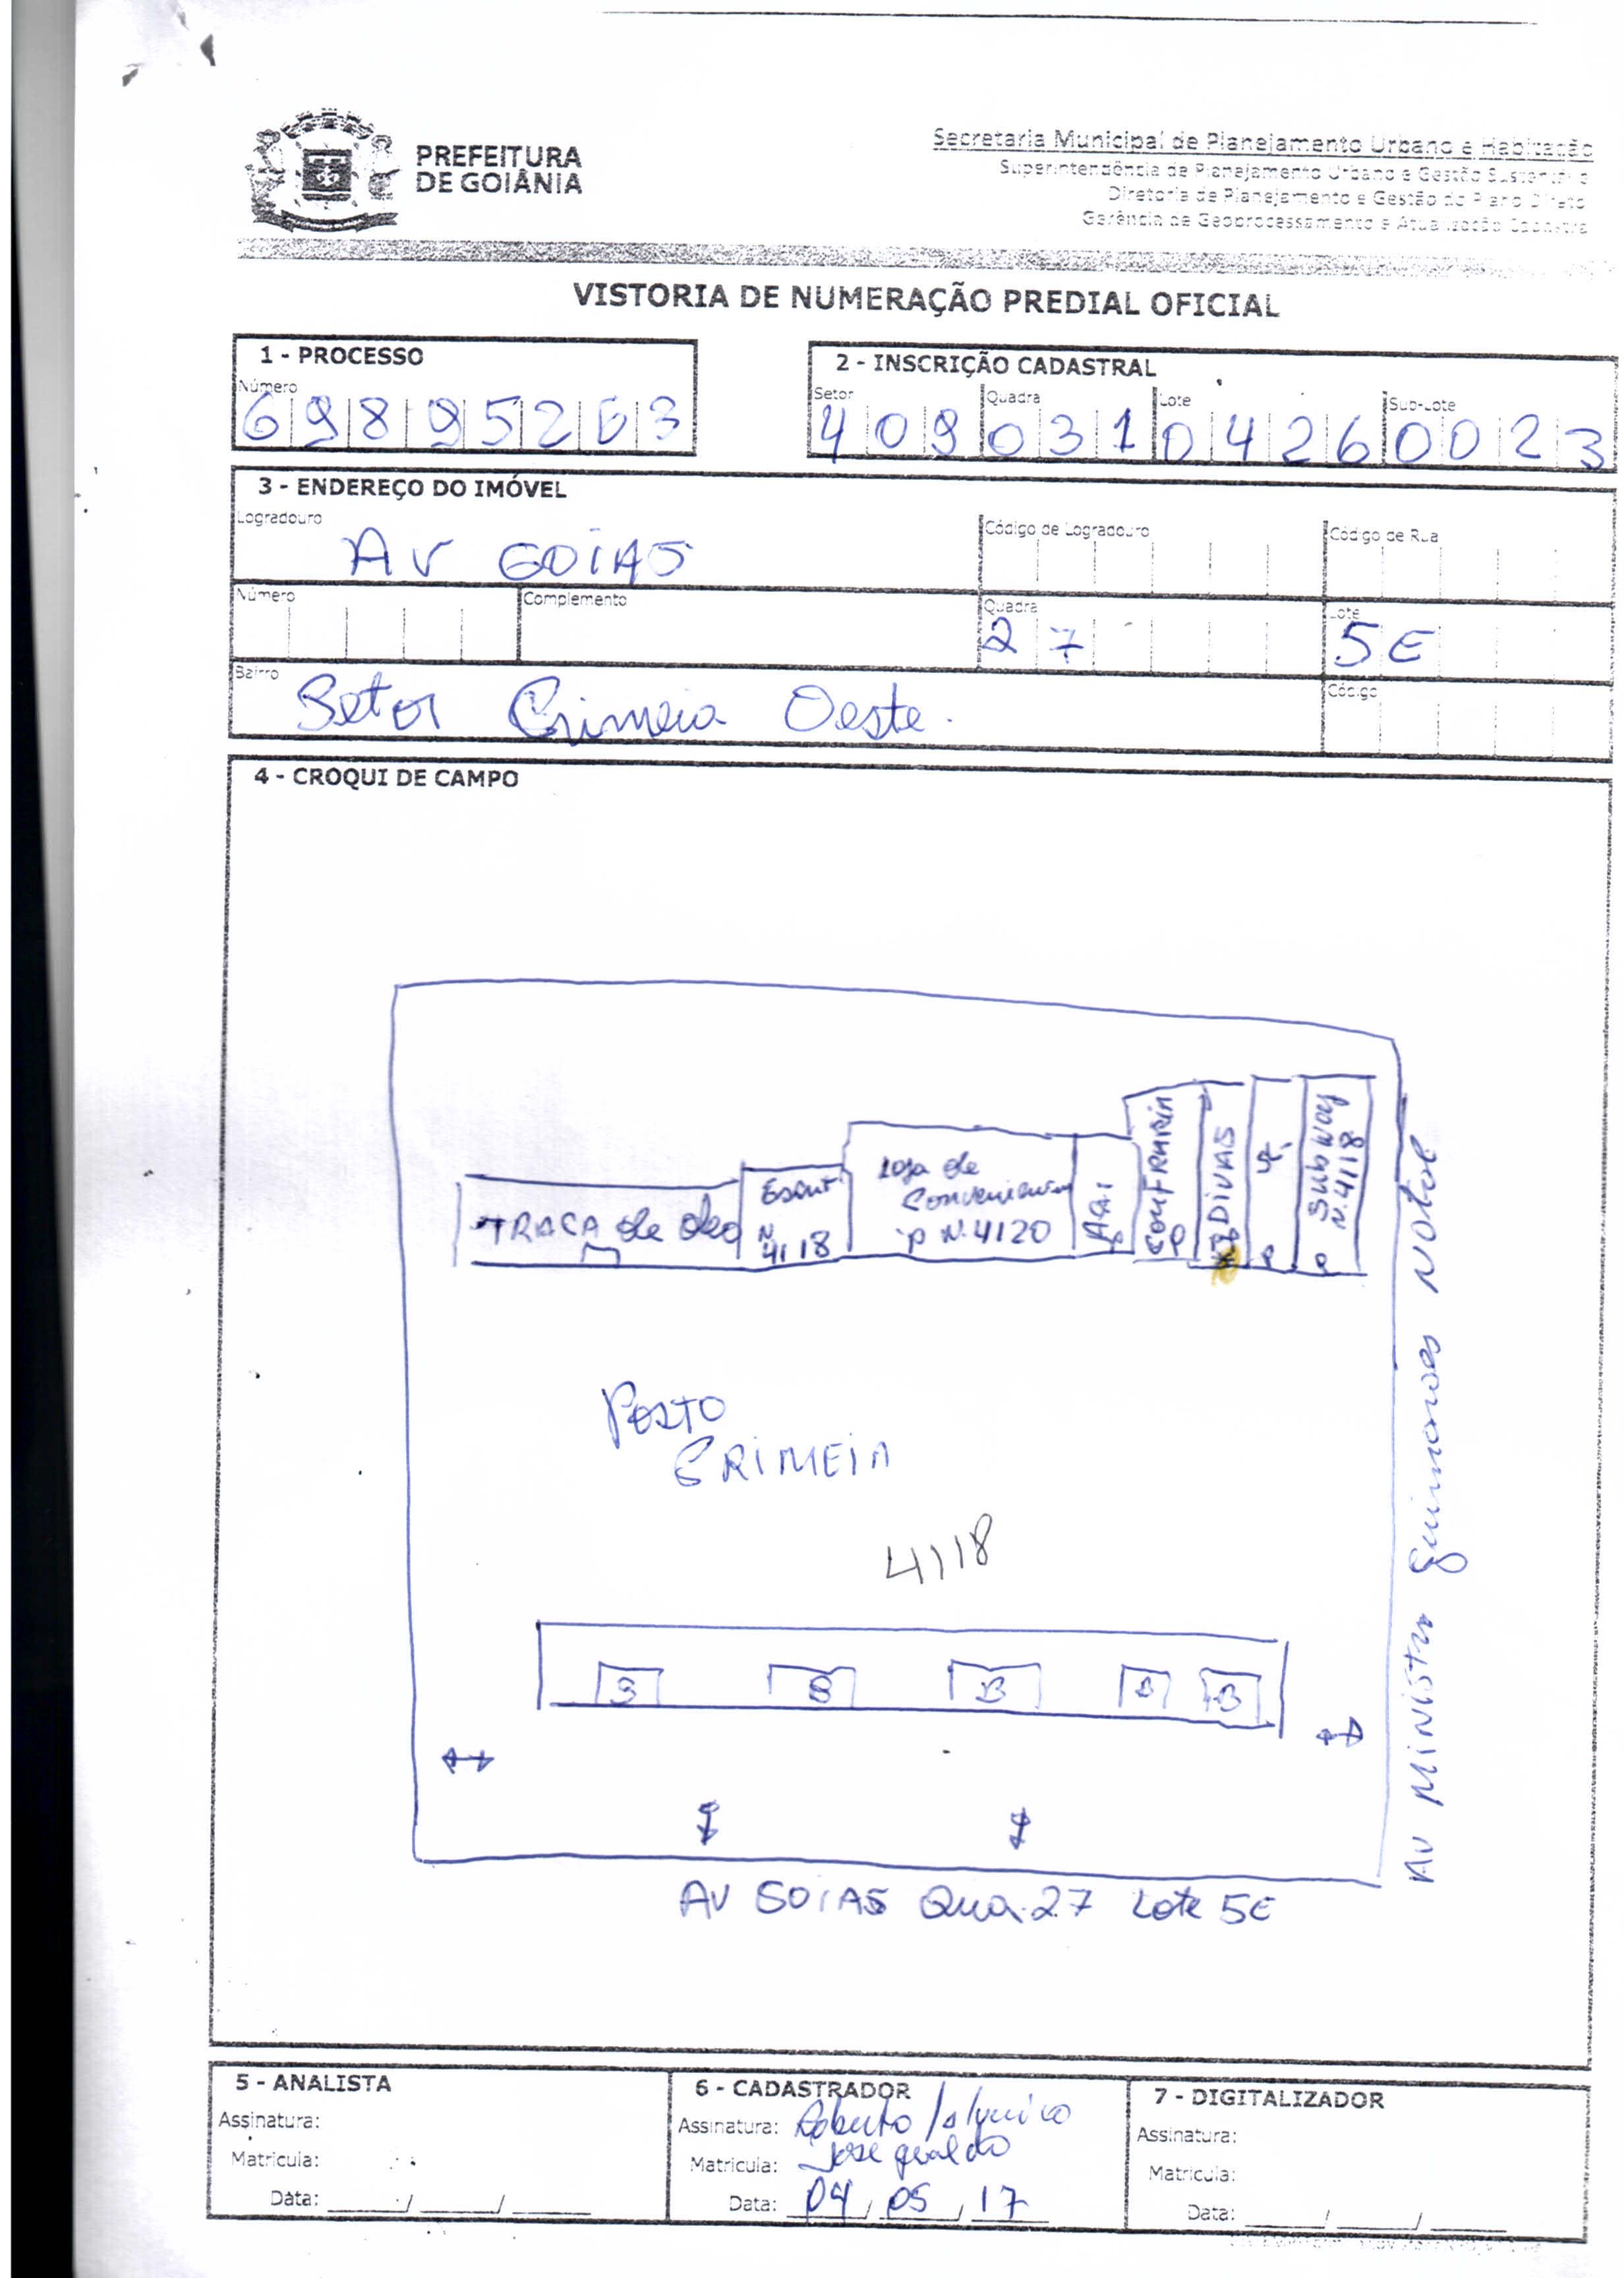 PREFEITURA
DE GOIÂNIA
Secretaria Municipal de Planejamento Urbano e Habitação
Superintendência de Planejamento Urbano e Gestão Sustentável
Diretoria de Planejamento e Gestão do Plano Diretor
Gerência de Geoprocessamento e Atualização Cadastral
VISTORIA DE NUMERAÇÃO PREDIAL OFICIAL
1 - PROCESSO
Número
698952 3
2 - INSCRIÇÃO CADASTRAL
Setor Quadra Lote Sub-Lote
409 031 0426 0023
3 - ENDEREÇO DO IMÓVEL
Logradouro Código de Logradouro Código de Rua
AV GOIAS
Número Complemento Quadra Lote
27 5E
Bairro Código
Setor Crimeia Oeste.
4 - CROQUI DE CAMPO
TROCA de oleo
Escrit
N
4118
Loja de
Conveniencia
P N. 4120
DIVAS
Subway
N. 4118
POSTO
CRIMEIA
4118
B B B B B
AV Ministro Guimaraes Natal
AV GOIAS Qua. 27 Lote 5E
5 - ANALISTA
Assinatura:
Matricula:
Data: / /
6 - CADASTRADOR
Assinatura: Roberto
Matricula: Jose Geraldo
Data: 04/05/17
7 - DIGITALIZADOR
Assinatura:
Matricula:
Data: / /